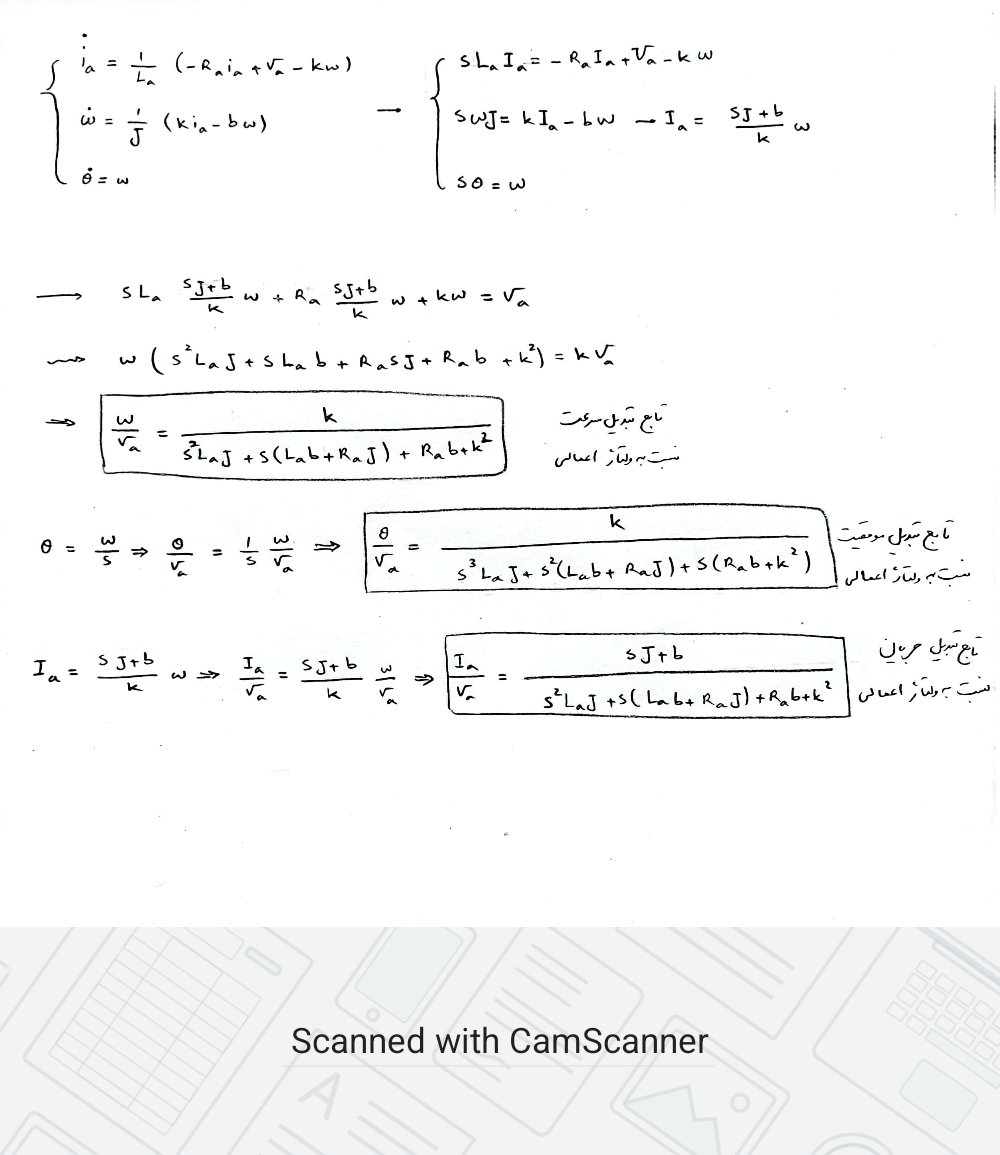 i̇ₐ = 1/Lₐ (-Rₐiₐ + Vₐ - kω) → sLₐIₐ = -RₐIₐ + Vₐ - kω
ω̇ = 1/J (kiₐ - bω) sωJ = kIₐ - bω → Iₐ = (sJ+b)/k ω
θ̇ = ω sθ = ω
→ sLₐ (sJ+b)/k ω + Rₐ (sJ+b)/k ω + kω = Vₐ
→ ω (s²LₐJ + sLₐb + RₐsJ + Rₐb + k²) = kVₐ
⇒ ω/Vₐ = k / (s²LₐJ + s(Lₐb + RₐJ) + Rₐb + k²) تابع تبدیل سرعت
نسبت به ولتاژ اعمالی
θ = ω/s ⇒ θ/Vₐ = 1/s ω/Vₐ ⇒ θ/Vₐ = k / (s³LₐJ + s²(Lₐb + RₐJ) + s(Rₐb + k²)) تابع تبدیل موقعیت
نسبت به ولتاژ اعمالی
Iₐ = (sJ+b)/k ω ⇒ Iₐ/Vₐ = (sJ+b)/k ω/Vₐ ⇒ Iₐ/Vₐ = (sJ+b) / (s²LₐJ + s(Lₐb + RₐJ) + Rₐb + k²) تابع تبدیل جریان
نسبت به ولتاژ اعمالی
Scanned with CamScanner